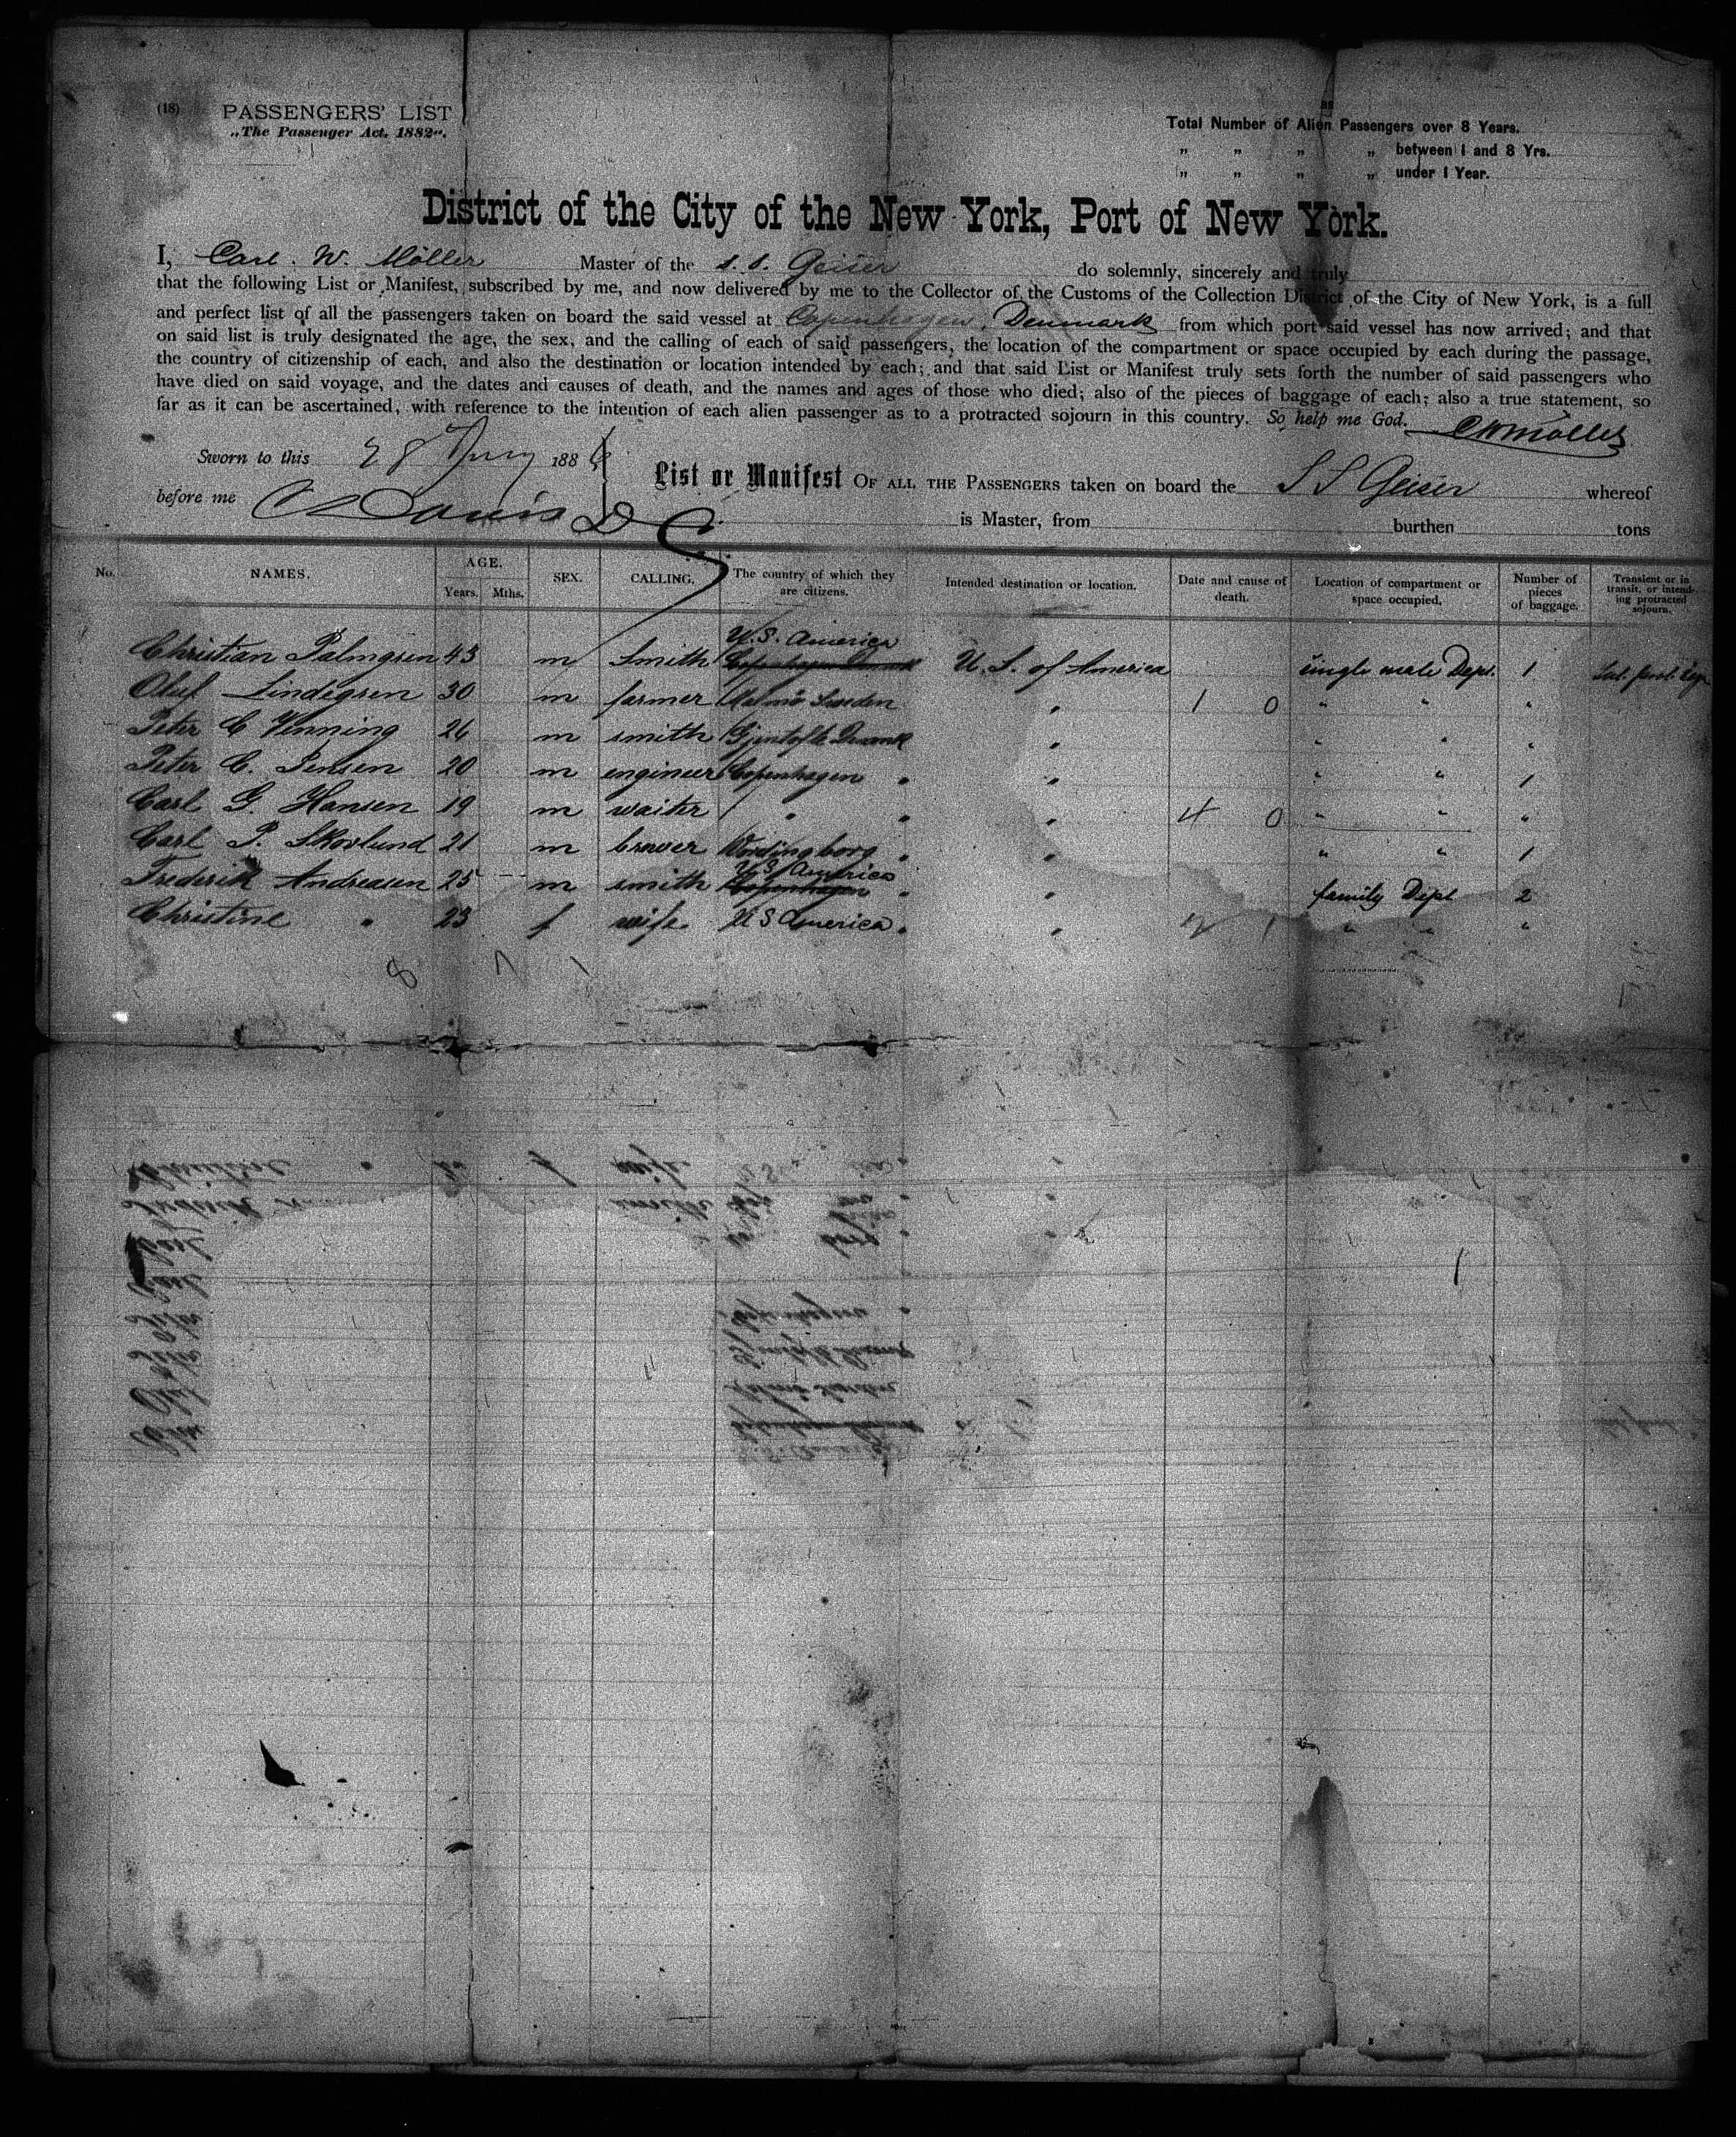 (18) PASSENGERS' LIST
„The Passenger Act, 1882".
Total Number of Alien Passengers over 8 Years.
„ „ „ „ between 1 and 8 Yrs.
„ „ „ „ under 1 Year.
District of the City of the New York, Port of New York.
I, Carl. W. Möller Master of the s. s. Geiser do solemnly, sincerely and truly
that the following List or Manifest, subscribed by me, and now delivered by me to the Collector of the Customs of the Collection District of the City of New York, is a full
and perfect list of all the passengers taken on board the said vessel at Copenhagen, Denmark from which port said vessel has now arrived; and that
on said list is truly designated the age, the sex, and the calling of each of said passengers, the location of the compartment or space occupied by each during the passage,
the country of citizenship of each, and also the destination or location intended by each; and that said List or Manifest truly sets forth the number of said passengers who
have died on said voyage, and the dates and causes of death, and the names and ages of those who died; also of the pieces of baggage of each; also a true statement, so
far as it can be ascertained, with reference to the intention of each alien passenger as to a protracted sojourn in this country. So help me God. CWMöller
Sworn to this 28 188
before me Davis D C
List or Manifest OF ALL THE PASSENGERS taken on board the S S Geiser whereof
is Master, from burthen tons
No. NAMES. AGE. Years. Mths. SEX. CALLING. The country of which they are citizens. Intended destination or location. Date and cause of death. Location of compartment or space occupied. Number of pieces of baggage. Transient or in transit, or intending protracted sojourn.
U.S. America
Christian Palmgren 43 m Smith Copenhagen Denmark U. S. of America single male Dept. 1
Oluf Lindegren 30 m farmer Malmö Sweden „ 1 0 „ „ „
Peter C Venning 26 m smith Gjentofte Denmark „ „ „ „
Peter C. Jensen 20 m engineer Copenhagen „ „ „ „ 1
Carl G. Hansen 19 m waiter „ „ „ 4 0 „ „ „
Carl P. Skovlund 21 m brewer Wordingborg „ „ „ „ 1
U S America
Frederik Andreasen 25 m smith Copenhagen „ „ family Dept 2
Christine „ 23 f wife U S America „ „ 2 1 „ „ „
8 7 1